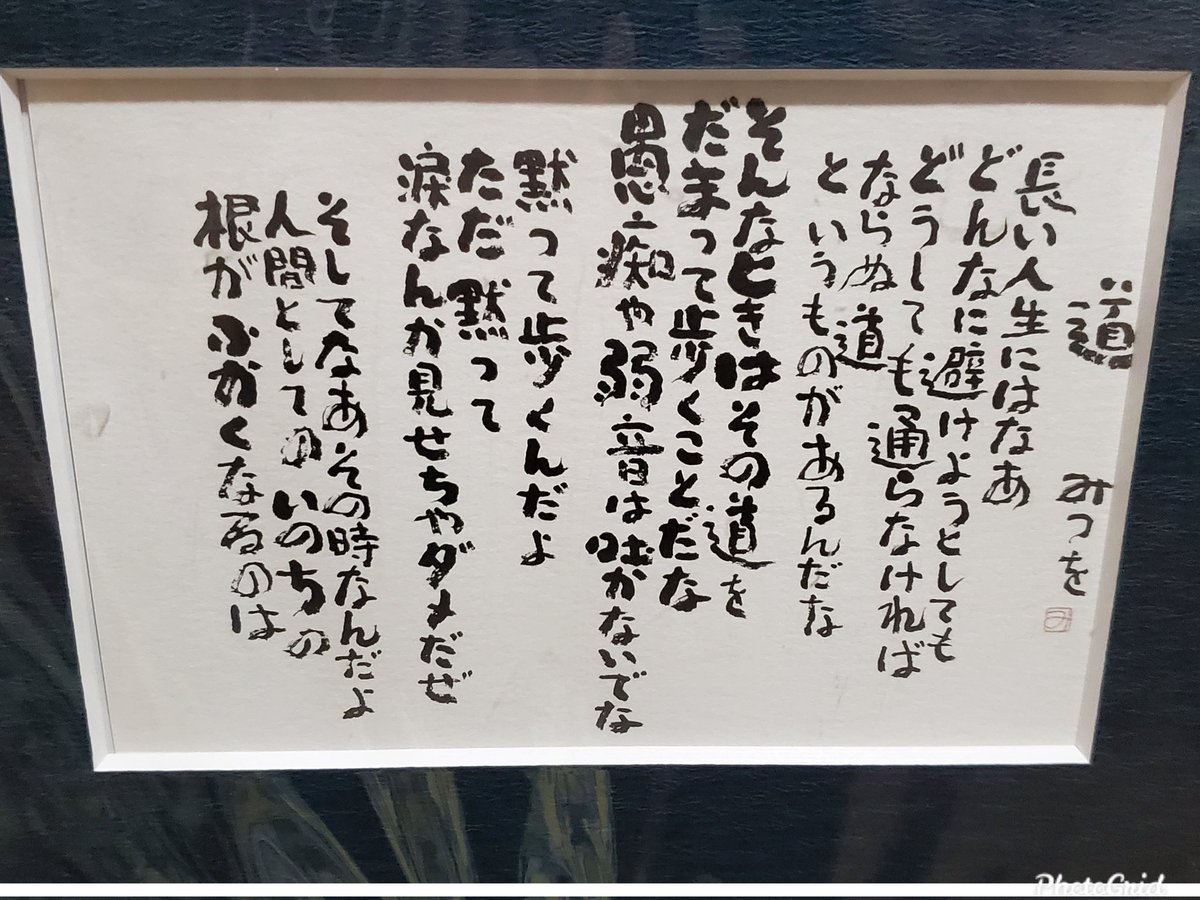 道 みつを
長い人生にはなあ
どんなに避けようとしても
どうしても通らなければ
ならぬ道
というものがあるんだな
そんなときはその道を
だまって歩くことだな
愚痴や弱音は吐かないでな
黙って歩くんだよ
ただ黙って
涙なんか見せちゃダメだぜ
そしてなあその時なんだよ
人間としてのいのちの
根がふかくなるのは
み
PhotoGrid